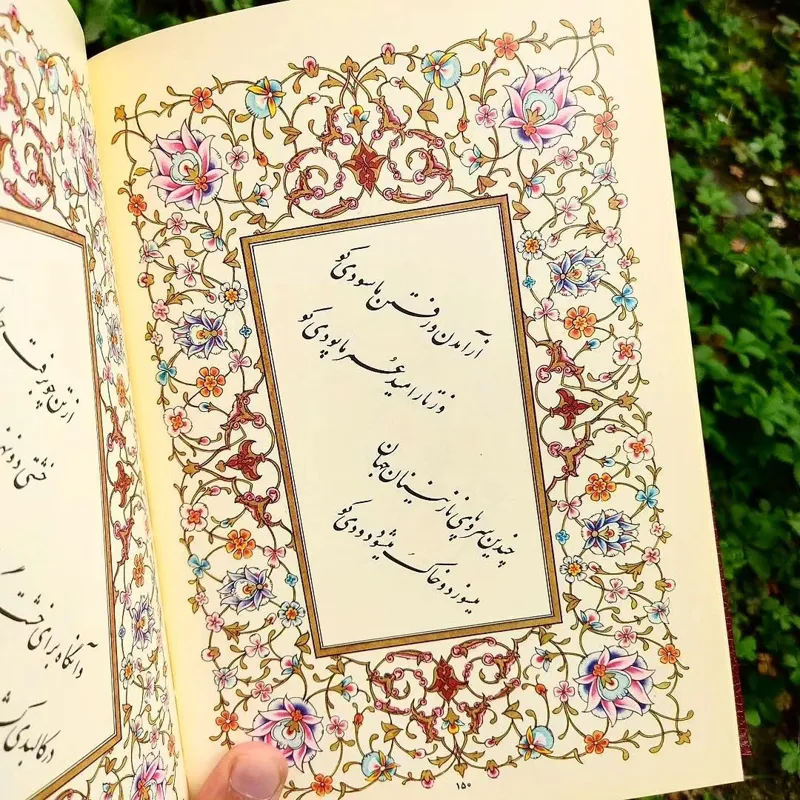 از آمدن و رفتن ما سودی کو
وز تار امید عمر ما پودی کو
چندین سر و پای نازنینان جهان
میسوزد و خاک میشود دودی کو
۱۵۰
از تن چو برفت
خشتی دو
وآنگاه برای خشت
در کالبدی